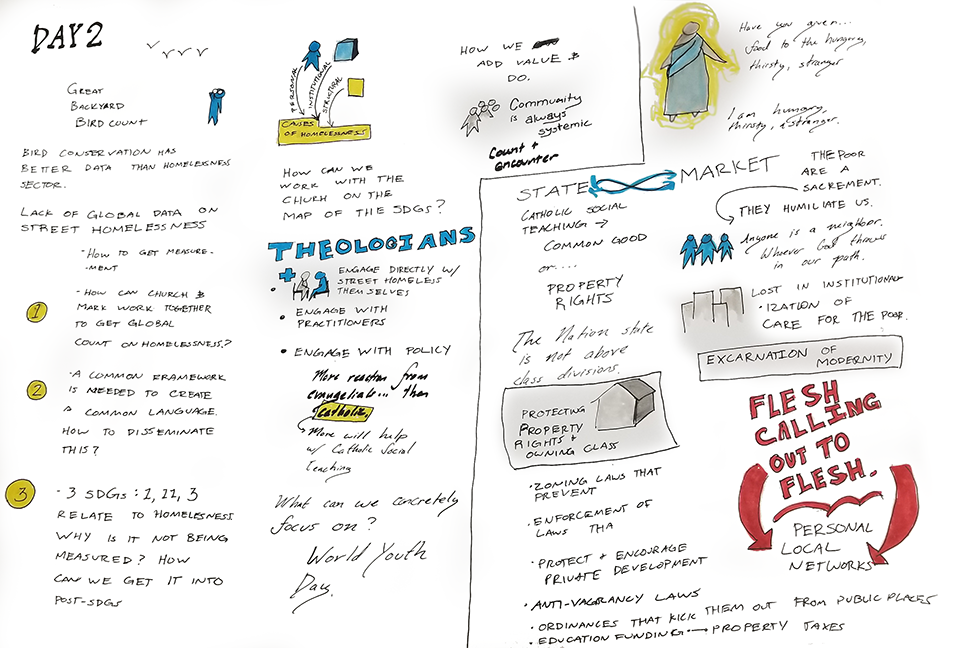 DAY 2
GREAT
BACKYARD
BIRD COUNT
BIRD CONSERVATION HAS
BETTER DATA THAN HOMELESSNESS
SECTOR.
LACK OF GLOBAL DATA ON
STREET HOMELESSNESS
• HOW TO GET MEASURE-
-MENT
1
• HOW CAN CHURCH &
MARK WORK TOGETHER
TO GET GLOBAL
COUNT ON HOMELESSNESS?
2
• A COMMON FRAMEWORK
IS NEEDED TO CREATE
A COMMON LANGUAGE.
HOW TO DISSEMINATE
THIS?
3
• 3 SDGS : 1, 11, 3
RELATE TO HOMELESSNESS
WHY IS IT NOT BEING
MEASURED? HOW
CAN WE GET IT INTO
POST-SDGS
PERSONAL
INSTITUTIONAL
STRUCTURAL
CAUSES
OF HOMELESSNESS
HOW CAN WE
WORK WITH THE
CHURH ON THE
MAP OF THE SDGS?
THEOLOGIANS
• ENGAGE DIRECTLY W/
STREET HOMELESS
THEMSELVES
• ENGAGE WITH
PRACTITIONERS
• ENGAGE WITH POLICY
More reaction from
evangelicals... then
Catholic.
More will help
w/ Catholic Social
Teaching
What can we concretely
focus on?
World Youth
Day.
HOW WE
ADD VALUE &
DO.
Community
is always
systemic
Count +
encounter
Have you given...
food to the hungry,
thirsty, stranger
I am hungry,
thirsty, a stranger.
STATE MARKET
CATHOLIC SOCIAL
TEACHING →
COMMON GOOD
or....
PROPERTY
RIGHTS
The Nation state
is not above
class divisions.
PROTECTING
PROPERTY
RIGHTS +
OWNING CLASS
• ZONING LAWS THAT
PREVENT
• ENFORCEMENT OF
LAWS THA
• PROTECT + ENCOURAGE
PRIVATE DEVELOPMENT
• ANTI-VAGRANCY LAWS
• ORDINANCES THAT KICK THEM OUT FROM PUBLIC PLACES
• EDUCATION FUNDING → PROPERTY TAXES
THE POOR
ARE A
SACREMENT.
THEY HUMILIATE US.
Anyone is a neighbor.
Whoever God throws
in our path.
LOST IN INSTITUTIONAL-
• IZATION OF
CARE FOR THE POOR.
EXCARNATION OF
MODERNITY
FLESH
CALLING
OUT TO
FLESH.
PERSONAL
LOCAL
NETWORKS